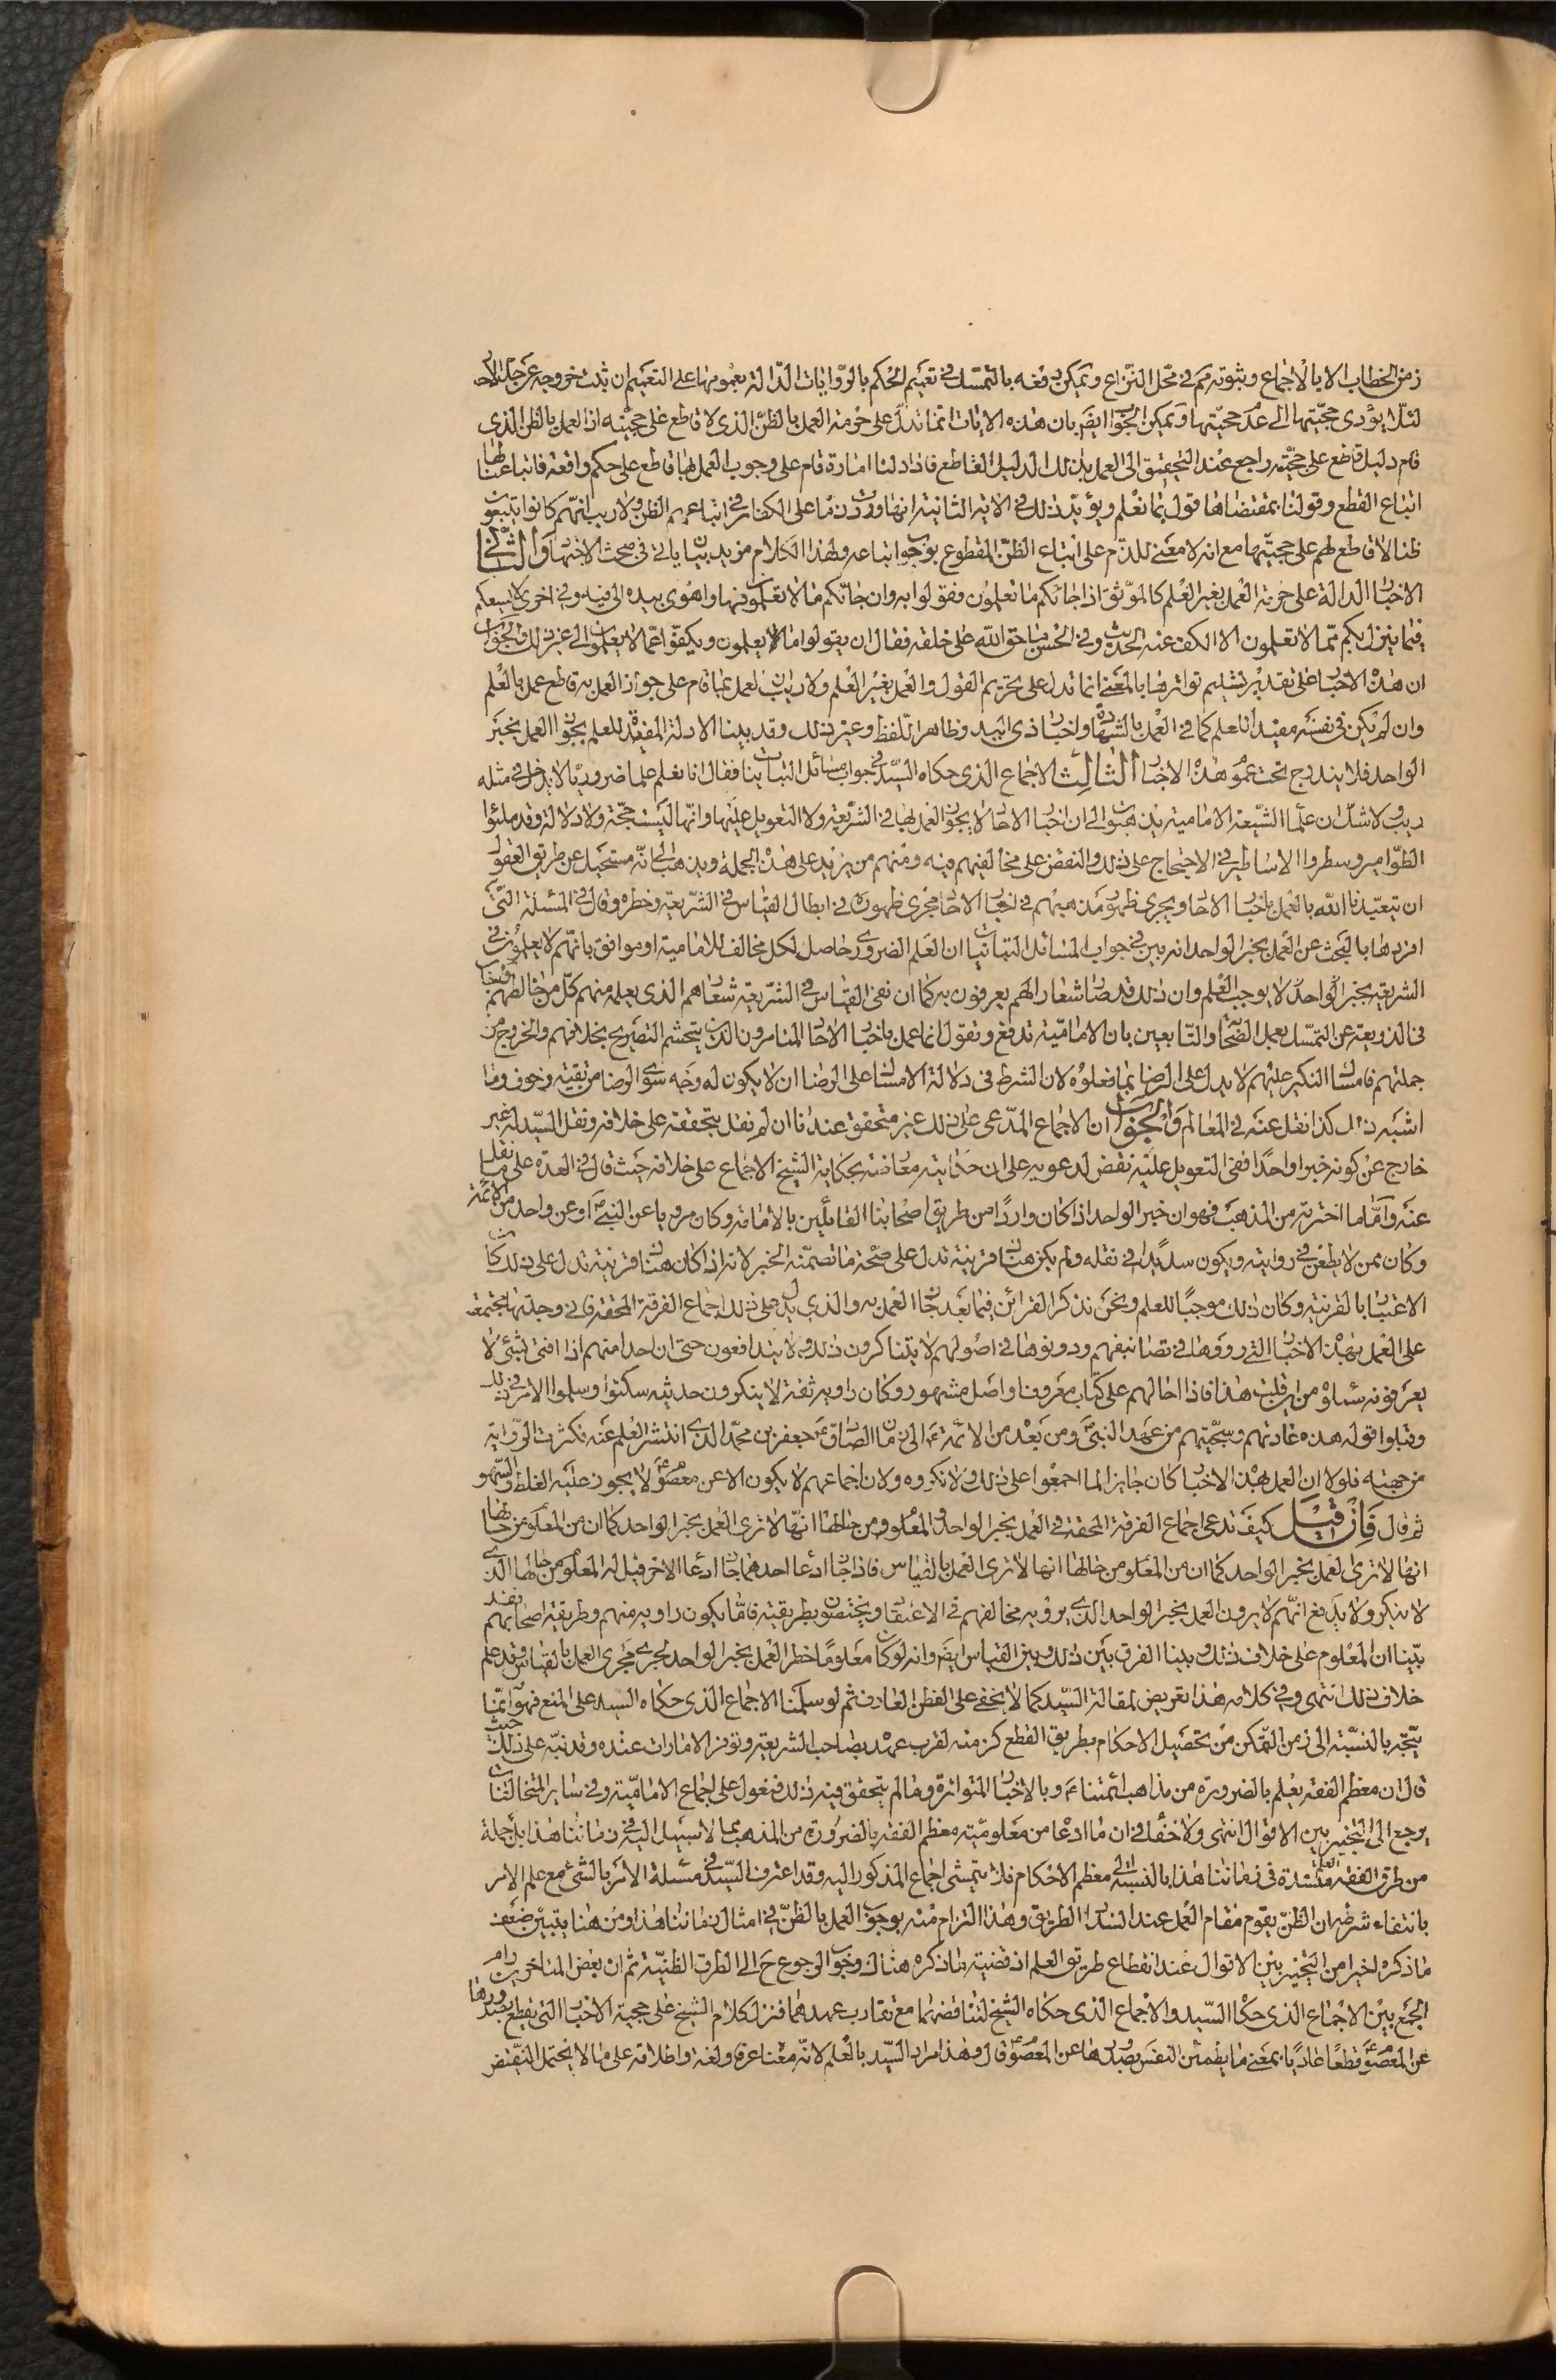 زمن الخطاب الا بالاجماع وثبوته ثم فى محل النزاع ويمكن دفعه بالتمسك فى تعميم الحكم بالروايات الدالة بعمومها على التعميم ان ثبت خروجه عن حد الآحاد
لئلا يؤدى حجيتها الى عدم حجيتها ويمكن الجواب ايضا بان هذه الايات انما تدل على حرمة العمل بالظن الذى لا قاطع على حجيته اذ العمل بالظن الذى
قام دليل قاطع على حجيته راجع عند التحقيق الى العمل بذلك الدليل القاطع فاذا دلنا امارة قام على وجوب العمل بها قاطع على حكم واقعة فاتباعنا لها
اتباع القطع وقولنا بمقتضاها قول بما نعلم ويؤيد ذلك فى الاية الثانية انها وردت ذما على الكفار فى اتباعهم الظن ولا ريب انهم كانوا يتبعون
ظنا لا قاطع لهم على حجيتها مع انه لا معنى للذم على اتباع الظن المقطوع بوجوب اتباعه ولهذا الكلام مزيد بيان ياتى فى مبحث الاجتهاد والثانى
الاخبار الدالة على حرمة العمل بغير العلم كالموثق اذا جائكم ما تعلمون فقولوا به وان جائكم ما لا تعلمون فها واهوى بيده الى فيه وفى اخرى لا يسعكم
فيما ينزل بكم مما لا تعلمون الا الكف عنه الحديث وفى الحسن ما حق الله على خلقه فقال ان يقولوا ما يعلمون ويكفوا عما لا يعلمون الى غير ذلك والجواب
ان هذه الاخبار على تقدير تسليم تواترها بالمعنى انما تدل على تحريم القول والعمل بغير العلم ولا ريب ان العمل بما قام على جواز العمل به قاطع عمل بالعلم
وان لم يكن فى نفسه مفيدا للعلم كما فى العمل بالشهادة واخبار ذى اليد وظاهر اللفظ وغير ذلك وقد بينا الادلة المفيدة للعلم بجواز العمل بخبر
الواحد فلا يندرج تحت عموم هذه الاخبار الثالث الاجماع الذى حكاه السيد فى جواب مسائل التبانيات بنا فقال انا نعلم علما ضروريا لا يدخل فى مثله
ريب ولا شك ان علماء الشيعة الامامية يذهبون الى ان اخبار الاحاد لا يجوز العمل بها فى الشريعة ولا التعويل عليها وانها ليست حجة ولا دلالة وقد ملئوا
الطوامير وسطروا الاساطير فى الاحتجاج على ذلك والنقض على مخالفيهم فيه ومنهم من يزيد على هذه الجملة ويذهب الى انه مستحيل عن طريق العقول
ان يتعبدنا الله بالعمل باخبار الاحاد ويجرى ظهور مذهبهم فى اخبار الاحاد مجرى ظهوره فى ابطال القياس فى الشريعة وخطره وقال فى المسئلة التى
افردها بالبحث عن العمل بخبر الواحد انه بين فى جواب المسائل التبانيات ان العلم الضرورى حاصل لكل مخالف للامامية او موافق بانهم لا يعملون فى
الشريعة بخبر الواحد لا يوجب العلم وان ذلك قد صار شعارا لهم يعرفون به كما ان نفى القياس فى الشريعة شعارهم الذى يعلمه منهم كل من خالطهم واجاب
فى الذريعة عن التمسك بعمل الصحابة والتابعين بان الامامية تدفع وتقول انما عمل باخبار الاحاد المتامرون الذين يتحشم التصريح بخلافهم والخروج من
جملتهم فامساك النكير عليهم لا يدل على الرضا بما فعلوه لان الشرط فى دلالة الامساك على الرضا ان لا يكون له وجه سوى الرضا من تقية وخوف وما
اشبه ذلك كذا نقل عنه فى المعالم والجواب ان الاجماع المدعى على ذلك غير متحقق عندنا ان لم نقل بتحققه على خلافه ونقل السيد له غير
خارج عن كونه خبرا واحدا ففى التعويل عليه نقض لدعويه على ان حكايته معارضة بحكاية الشيخ الاجماع على خلافه حيث قال فى العدة على ما نقل
عنه واما ما اخترته من المذهب فهو ان خبر الواحد اذا كان واردا من طريق اصحابنا القائلين بالامامة وكان مرويا عن النبى ص او عن واحد من الائمة
وكان ممن لا يطعن فى روايته ويكون سديدا فى نقله ولم يكن هناك قرينة تدل على صحة ما تضمنه الخبر لانه اذا كان هناك قرينة تدل على ذلك كان
الاعتبار بالقرينة وكان ذلك موجبا للعلم ونحن نذكر القرائن فيما بعد جاز العمل به والذى يدل على ذلك اجماع الفرقة المحقة فانى وجدتها مجتمعة
على العمل بهذه الاخبار التى رووها فى تصانيفهم ودونوها فى اصولهم لا يتناكرون ذلك ولا يتدافعون حتى ان احدا منهم اذا افتى بشئ لا
يعرفونه سئلوه من اين قلت هذا فاذا احالهم على كتاب معروف او اصل مشهور وكان راويه ثقة لا ينكرون حديثه سكتوا وسلموا الامر فى ذلك
وقبلوا قوله هذه عادتهم وسجيتهم من عهد النبى ص ومن بعد من الائمة ع الى زمان الصادق ع جعفر بن محمد الذى انتشر العلم عنه فكثرت الرواية
من جهته فلولا ان العمل بهذه الاخبار كان جايزا لما اجمعوا على ذلك ولانكروه ولان اجماعهم لا يكون الا عن معصوم لا يجوز عليه الغلط والسهو
ثم قال فان قيل كيف تدعى اجماع الفرقة المحقة فى العمل بخبر الواحد والمعلوم من حالها انها لا ترى العمل بخبر الواحد كما ان من المعلوم من حالها
انها لا ترى العمل بخبر الواحد كما ان من المعلوم من حالها انها لا ترى العمل بالقياس فاذا جاز ادعاء احدهما جاز ادعاء الاخر قيل له المعلوم من حالها الذى
لا ينكر ولا يدفع انهم لا يرون العمل بخبر الواحد الذى يرويه مخالفهم فى الاعتقاد ويختصون بطريقته فاما ما يكون راويه منهم وطريقه اصحابهم فقد
بينا ان المعلوم على خلاف ذلك وبينا الفرق بين ذلك وبين القياس ايضا وانه لو كان معلوما خطر العمل بخبر الواحد لجرى مجرى العمل بالقياس وقد علم
خلاف ذلك انتهى وفى كلامه هذا تعريض لمقالة السيد كما لا يخفى على الفطن العارف ثم لو سلمنا الاجماع الذى حكاه السيد على المنع فهو انما
يتجه بالنسبة الى زمن التمكن من تحصيل الاحكام بطريق القطع كزمنه لقرب عهده بصاحب الشريعة وتوفر الامارات عنده وقد نبه على ذلك حيث
قال ان معظم الفقه يعلم بالضرورة من مذاهب ائمتنا ع وبالاخبار المتواترة وما لم يتحقق فيه ذلك فنعول على اجماع الامامية وفى ساير المتخالفات
يرجع الى التخيير بين الاقوال انتهى ولا خفاء فى ان ما ادعا من معلومية معظم الفقه بالضرورة من المذهب مما لا سبيل اليه فى زماننا هذا بل جملة
من طرق الفقه العلمية منسدة فى زماننا هذا بالنسبة الى معظم الاحكام فلا يتمشى اجماع المذكور اليه وقد اعترف السيد فى مسئلة الامر بالشئ مع علم الامر
بانتفاء شرطه ان الظن يقوم مقام العلم عند انسداد الطريق وهذا التزام منه بوجوب العمل بالظن فى امثال زماننا هذا ومن هنا يتبين ضعف
ما ذكره اخيرا من التخيير بين الاقوال عند انقطاع طريق العلم اذ قضية ما ذكره هناك وجوب الرجوع ح الى الطرق الظنية ثم ان بعض المتاخرين رام
الجمع بين الاجماع الذى حكاه السيد والاجماع الذى حكاه الشيخ لتناقضهما مع تقارب عهدهما فنزل كلام الشيخ على حجية الاخبار التى يقطع بصدورها
عن المعصوم ع قطعا عاديا بمعنى ما يطمئن النفس بصدورها عن المعصوم قال وهذا مراد السيد بالعلم لانه معناه عرفا ولغة واطلاقه على ما لا يحتمل النقيض